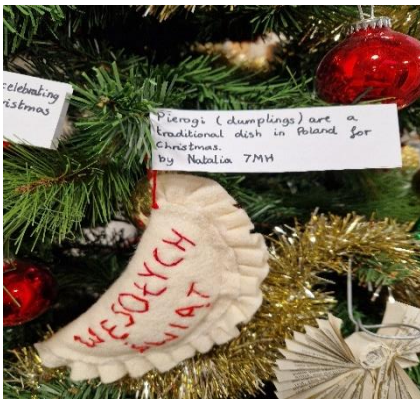 celebrating
ristmas
Pierogi (dumplings) are a
traditional dish in Poland for
Christmas.
by Natalia 7MH
WESOŁYCH
ŚWIĄT